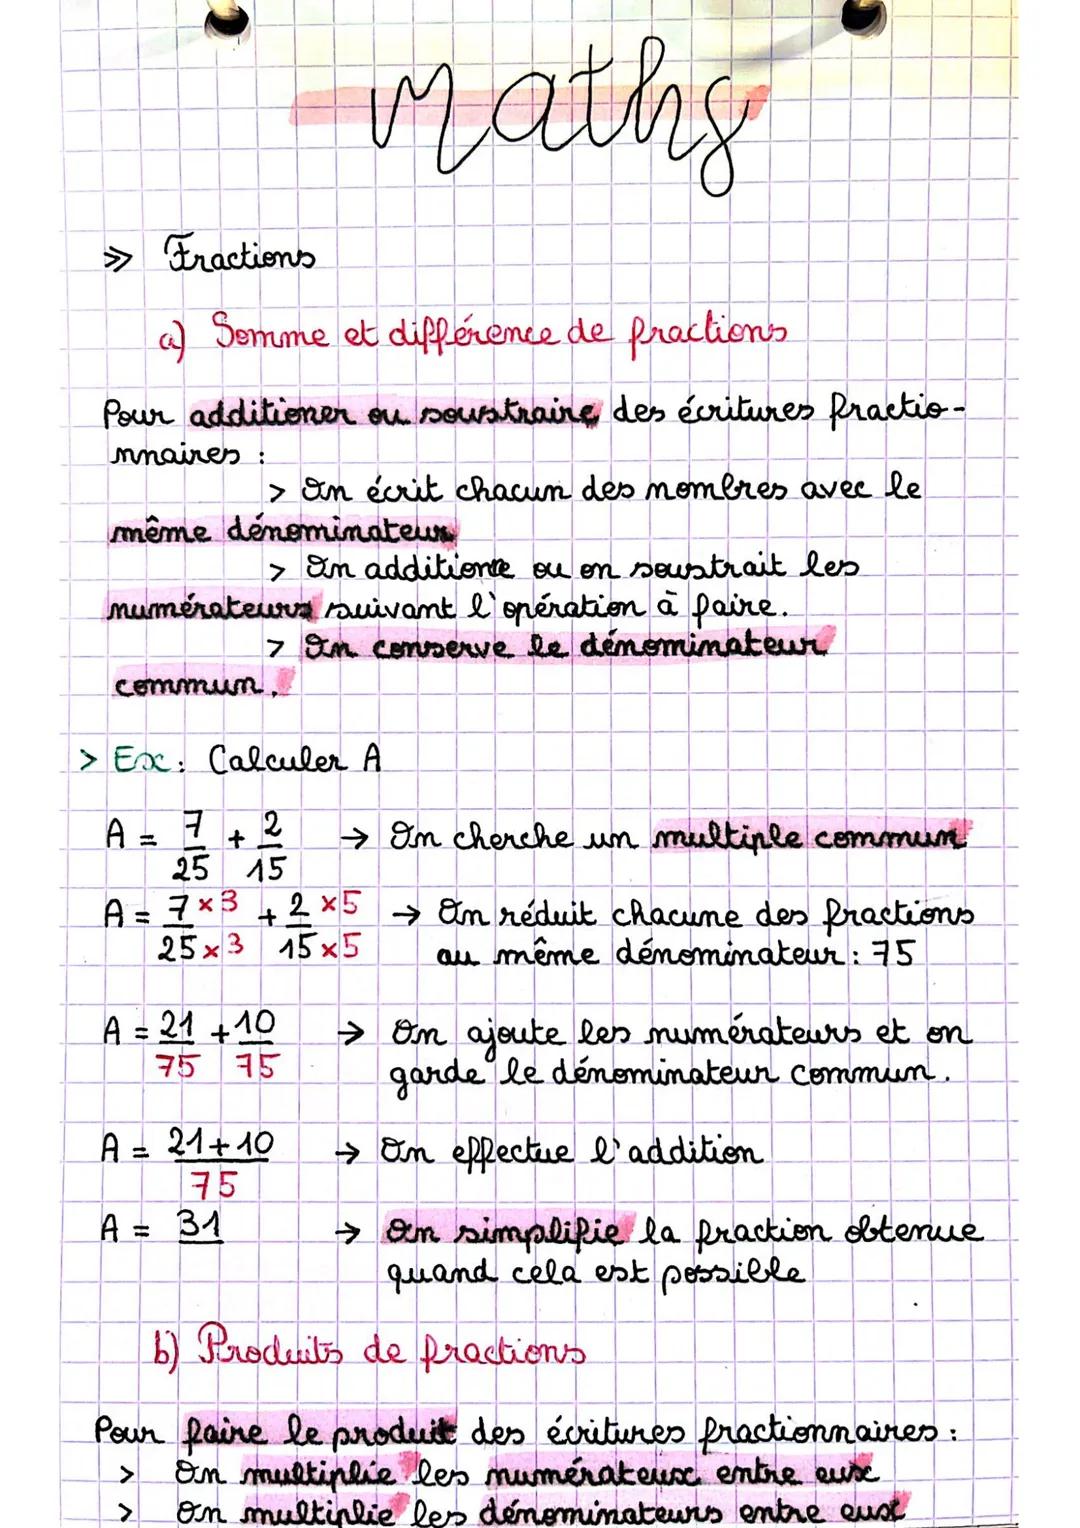 maths
>> Fractions
a) Somme et différence de fractions
Pour additioner ou soustraire des écritures fractio-
nnaires :
> On écrit chacun des nombres avec le
même dénominateur
> On additione ou on soustrait les
numérateurs suivant l'opération à faire.
> On conserve le dénominateur
commun.
> Ex: Calculer A
A = 7/25 + 2/15 → On cherche un multiple commun
A = 7×3/25×3 + 2×5/15×5 → On réduit chacune des fractions
au même dénominateur : 75
A = 21/75 + 10/75 → On ajoute les numérateurs et on
garde le dénominateur commun.
A = 21+10/75 → On effectue l'addition
A = 31 → On simplifie la fraction obtenue
quand cela est possible
b) Produits de fractions
Pour faire le produit des écritures fractionnaires :
> On multiplie les numérateux entre eux
> On multiplie les dénominateurs entre eux